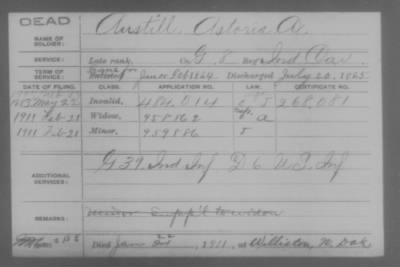 DEAD
NAME OF SOLDIER: Austill, Astoria A.
SERVICE: Late rank, Co. G, 8 Reg't Ind Cav.
TERM OF SERVICE: Enlisted Feb 1864, Discharged July 20, 1865
DATE OF FILING. CLASS. APPLICATION NO. LAW. CERTIFICATE NO.
May 22 Invalid, 484,014 268,081
1911 Feb-28 Widow, 958862 a
1911 Feb-28 Minor, 959886 5
ADDITIONAL SERVICES: G 39, Ind Inf D 6 U.S. Inf
REMARKS: minor supp'l to widow
Died Jan 22, 1911, at Williston, N. Dak